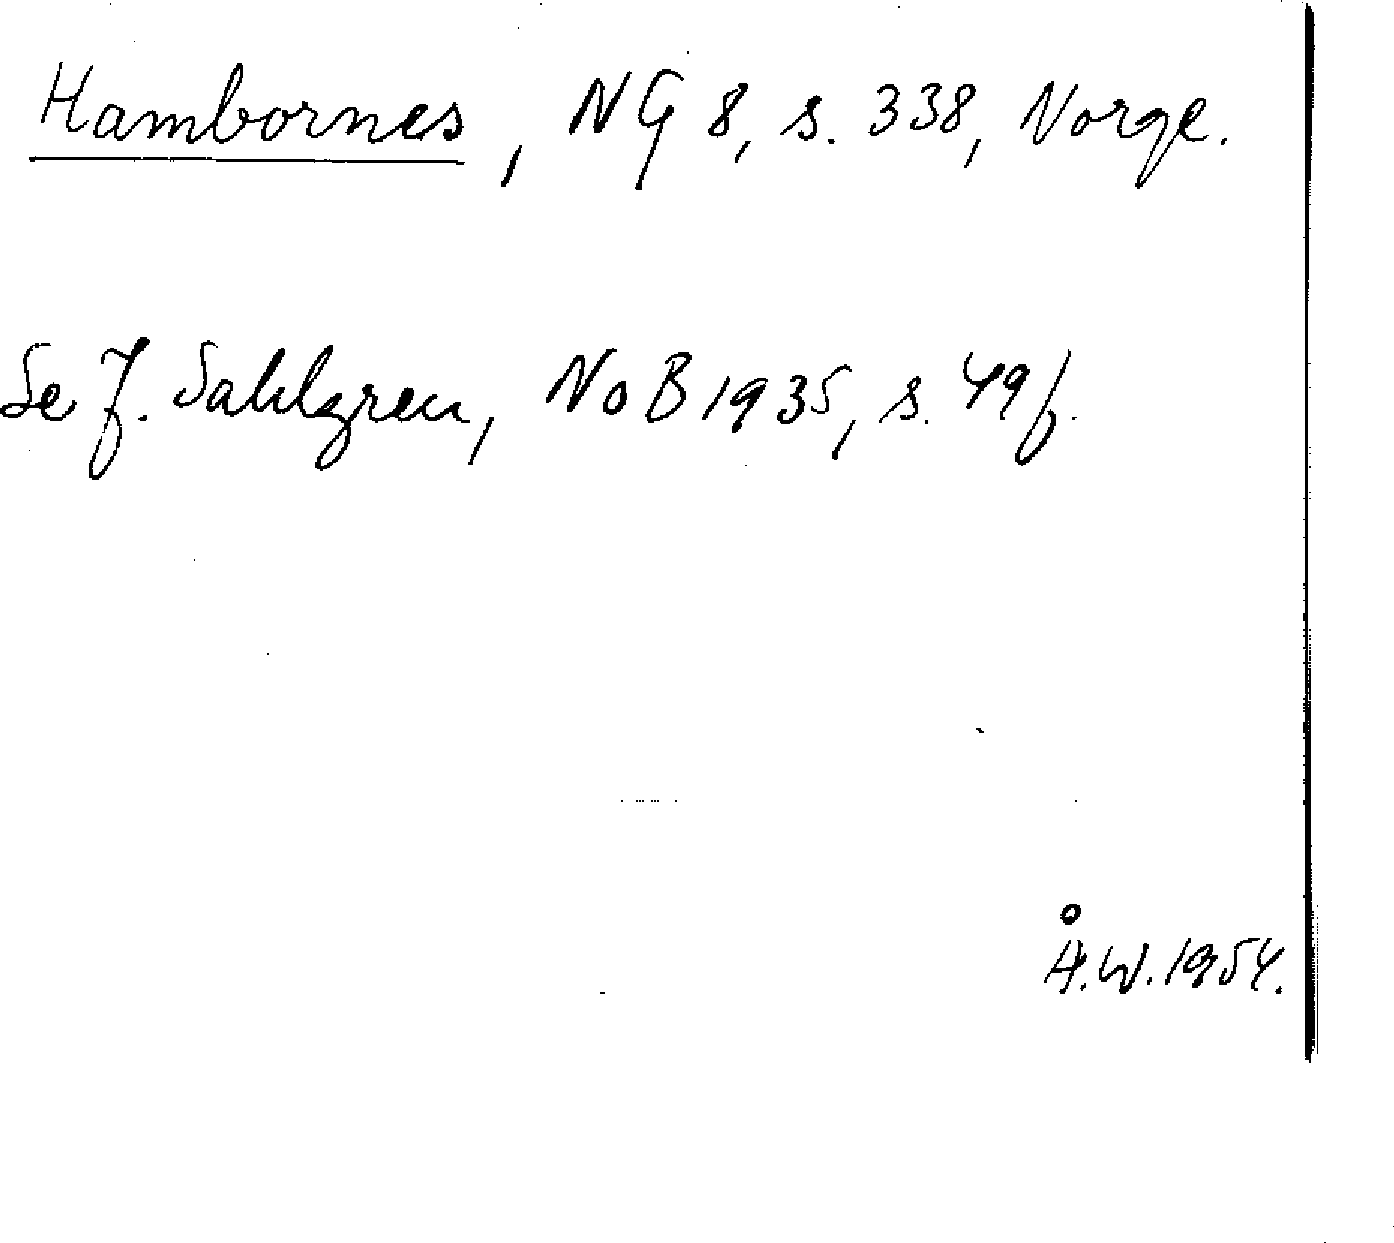 Hambornes, NG 8, s. 338, Norge.
Se J. Sahlgren, NoB 1935, s. 49 f.
Å.W. 1954.